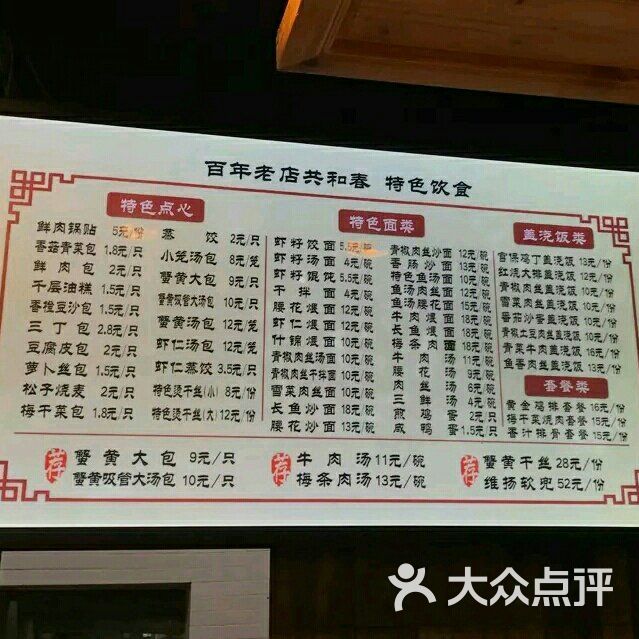 百年老店共和春 特色饮食
特色点心
鲜肉锅贴 5元/份
香菇青菜包 1.8元/只
鲜肉包 2元/只
千层油糕 1.5元/只
香橙豆沙包 1.5元/只
三丁包 2.8元/只
豆腐皮包 2元/只
萝卜丝包 1.5元/只
松子烧麦 2元/只
梅干菜包 1.8元/只
蒸饺 2元/只
小笼汤包 8元/笼
蟹黄大包 9元/只
蟹黄吸管大汤包 10元/只
蟹黄汤包 12元/笼
虾仁汤包 12元/笼
虾仁蒸饺 3.5元/只
特色烫干丝(小) 8元/份
特色烫干丝(大) 12元/份
特色面类
虾籽饺面 5.5元/碗
虾籽汤面 4元/碗
虾籽馄饨 5.5元/碗
干拌面 4元/碗
腰花煨面 12元/碗
虾仁煨面 12元/碗
什锦煨面 10元/碗
青椒肉丝汤面 10元/碗
青椒肉丝干拌面 10元/碗
雪菜肉丝面 10元/碗
长鱼炒面 18元/碗
腰花炒面 13元/碗
青椒肉丝炒面 12元/碗
香肠炒面 13元/碗
特色鱼汤面 12元/碗
鱼汤肉丝面
鱼汤腰花面
牛肉煨面
长鱼煨面 18元/碗
梅条肉面
牛肉汤 11元/碗
腰花汤 9元/碗
肉丝汤 6元/碗
三鲜汤 4元/碗
煎鸡蛋 2元/只
咸鸭蛋 1.5元/只
盖浇饭类
宫保鸡丁盖浇饭 13元/份
红烧大排盖浇饭 12元/份
青椒肉丝盖浇饭 10元/份
雪菜肉丝盖浇饭 10元/份
番茄炒蛋盖浇饭 10元/份
青椒土豆肉丝盖浇饭 10元/份
青菜牛肉盖浇饭 16元/份
鱼香肉丝盖浇饭 13元/份
套餐类
黄金鸡排套餐 16元/份
梅干菜烧肉套餐 15元/份
香汁排骨套餐 15元/份
荐 蟹黄大包 9元/只
蟹黄吸管大汤包 10元/只
荐 牛肉汤 11元/碗
梅条肉汤 13元/碗
荐 蟹黄干丝 28元/份
维扬软兜 52元/份
大众点评